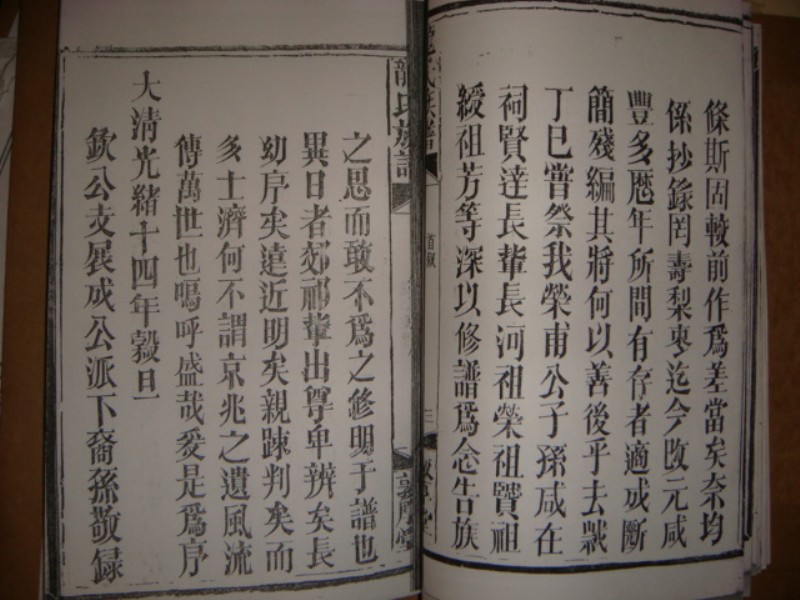 條斯固較前作爲差當矣奈均
係抄錄罔壽梨枣迄今改元咸
豐多歷年所間有存者適成斷
簡殘編其將何以善後乎去歲
丁巳嘗祭我榮甫公子孫咸在
祠賢達長輩長河祖榮祖賢祖
綬祖芳等深以修譜爲念告族
三
龍氏族譜
敦厚堂
之思而敢不爲之修明于譜也
異日者郊祁輩出尊卑辨矣長
幼序矣遠近明矣親踈判矣而
多士濟何不謂京兆之遺風流
傳萬世也嗚呼盛哉爰是爲序
大清光緒十四年穀日
欽公支展成公派下裔孫敬録